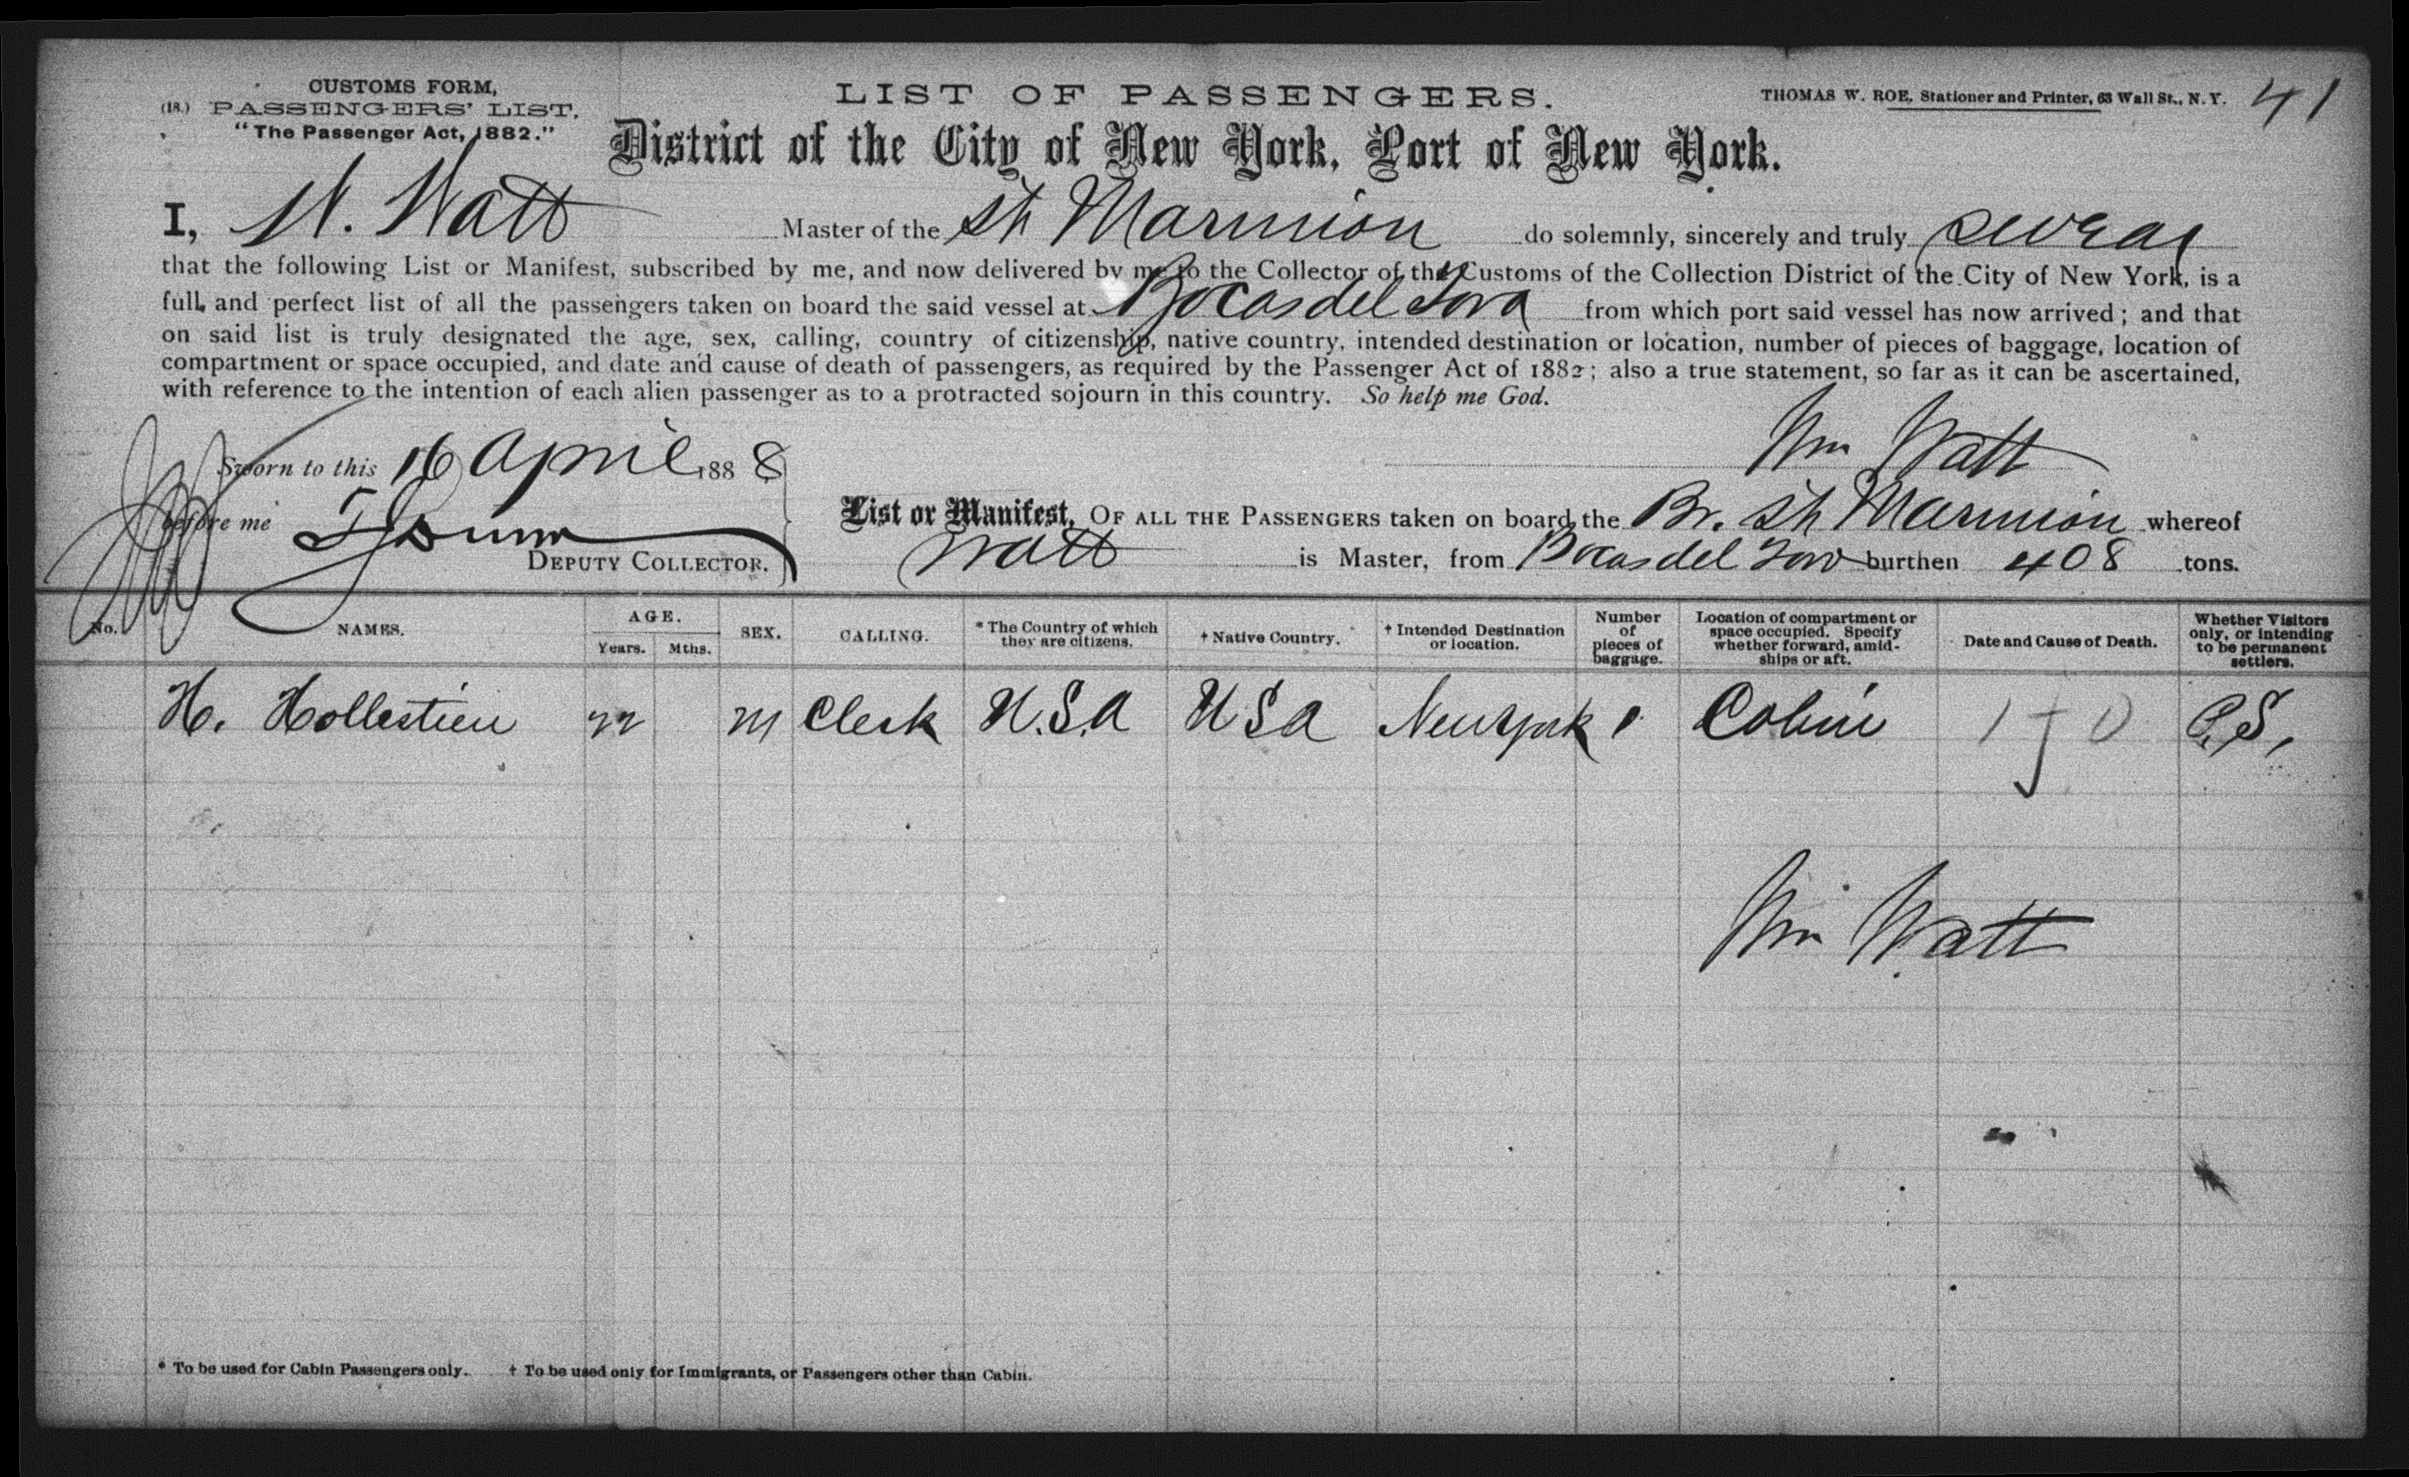 CUSTOMS FORM,
(18.) PASSENGERS' LIST.
"The Passenger Act, 1882."
LIST OF PASSENGERS.
THOMAS W. ROE, Stationer and Printer, 63 Wall St., N. Y.
41
District of the City of New York, Port of New York.
I, W. Watt Master of the Sh Marmion do solemnly, sincerely and truly swear
that the following List or Manifest, subscribed by me, and now delivered by me to the Collector of the Customs of the Collection District of the City of New York, is a
full and perfect list of all the passengers taken on board the said vessel at Bocas del Toro from which port said vessel has now arrived; and that
on said list is truly designated the age, sex, calling, country of citizenship, native country, intended destination or location, number of pieces of baggage, location of
compartment or space occupied, and date and cause of death of passengers, as required by the Passenger Act of 1882; also a true statement, so far as it can be ascertained,
with reference to the intention of each alien passenger as to a protracted sojourn in this country. So help me God.
Sworn to this 16 April 1888
Wm Watt
before me
DEPUTY COLLECTOR.
List or Manifest, OF ALL THE PASSENGERS taken on board the Br. Sh Marmion whereof
Watt is Master, from Bocas del Toro burthen 408 tons.
No. NAMES. AGE. Years. Mths. SEX. CALLING. * The Country of which they are citizens. † Native Country. † Intended Destination or location. Number of pieces of baggage. Location of compartment or space occupied. Specify whether forward, amidships or aft. Date and Cause of Death. Whether Visitors only, or intending to be permanent settlers.
H. Hollestien 22 M Clerk U.S.A U S A New York 1 Cabin P.S.
Wm Watt
* To be used for Cabin Passengers only. † To be used only for Immigrants, or Passengers other than Cabin.